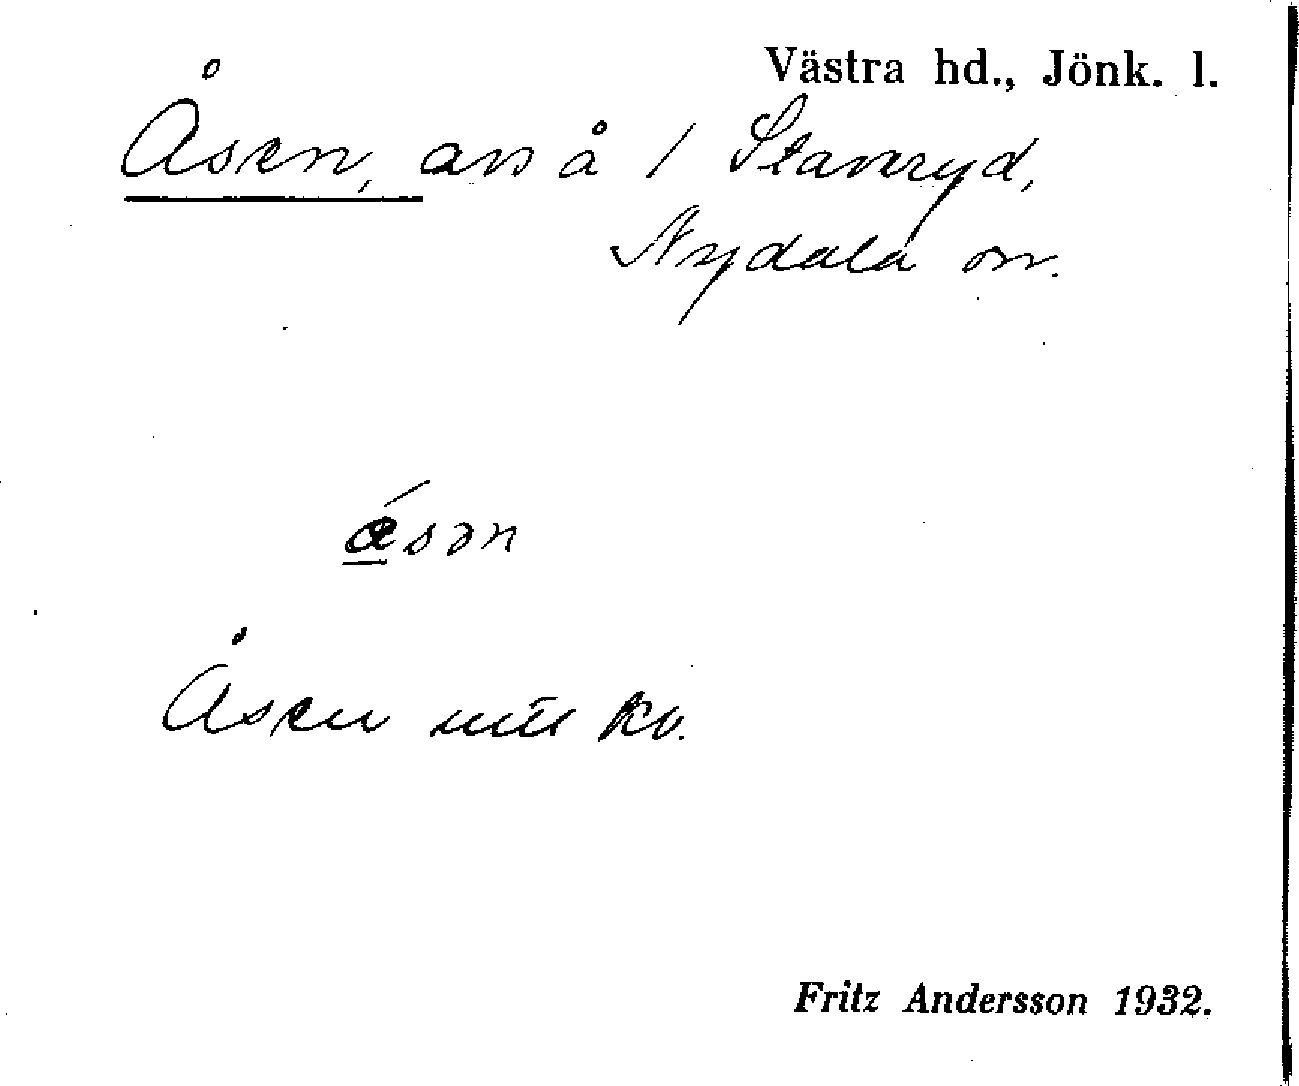 Västra hd., Jönk. l.
Åsen, avs å / Stavsryd,
Nydala sn.
åsən
Åsen
Fritz Andersson 1932.